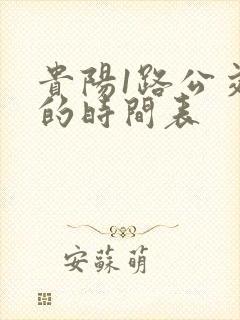 貴陽1路公交
的時間表
安蘇萌